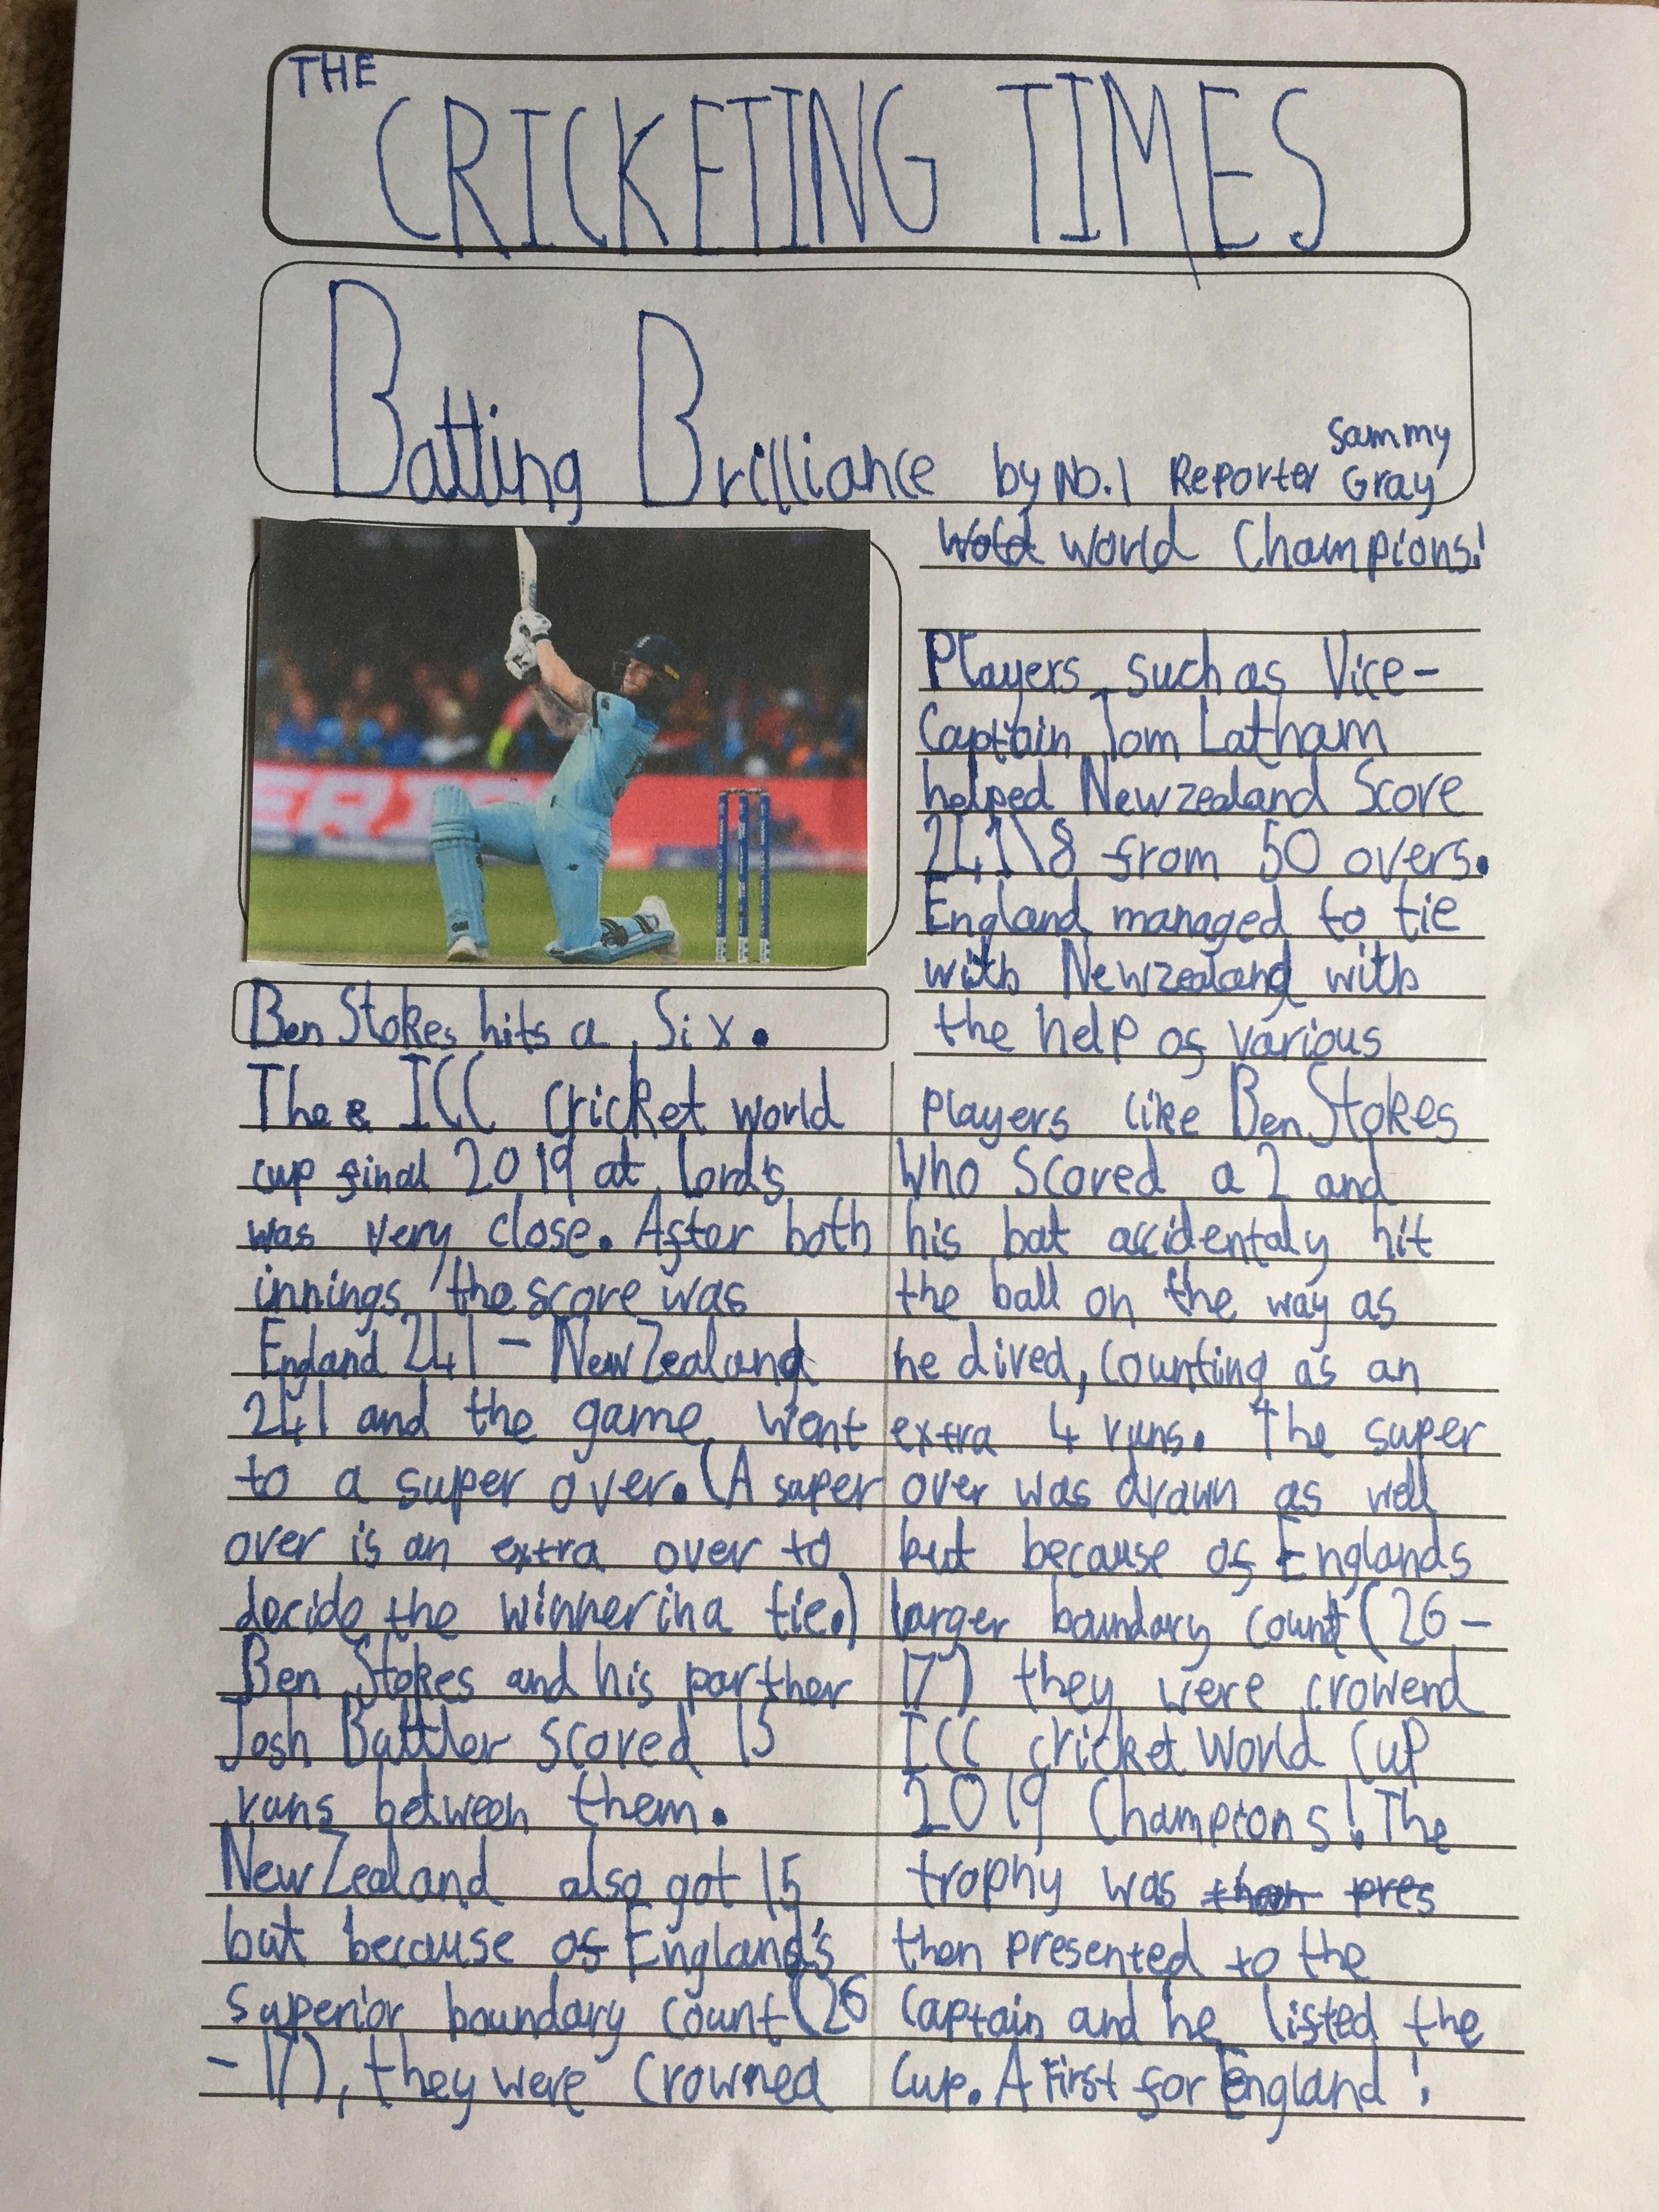 THE
CRICKETING TIMES
Batting Brilliance by No.1 Reporter Sammy Gray
Ben Stokes hits a Six.
The ICC cricket world
cup final 2019 at Lord's
was very close. After both
innings, the score was
England 241 - New Zealand
241 and the game went
to a super over. (A super
over is an extra over to
decide the winner in a tie.)
Ben Stokes and his parther
Josh Battler scored 15
runs between them.
New Zealand also got 15
but because of England's
superior boundary count (26
- 17), they were crowned
Wold world Champions!
Players such as Vice-
Captain Tom Latham
helped Newzealand Score
241\8 from 50 overs.
England managed to tie
with Newzealand with
the help of various
players like Ben Stokes
who scored a 2 and
his bat accidentaly hit
the ball on the way as
he dived, counting as an
extra 4 runs. The super
over was drawn as well
but because of Englands
larger boundary count (26 -
17) they were crowend
ICC cricket World Cup
2019 Champions! The
trophy was then pres
then presented to the
Captain and he lifted the
Cup. A first for England!